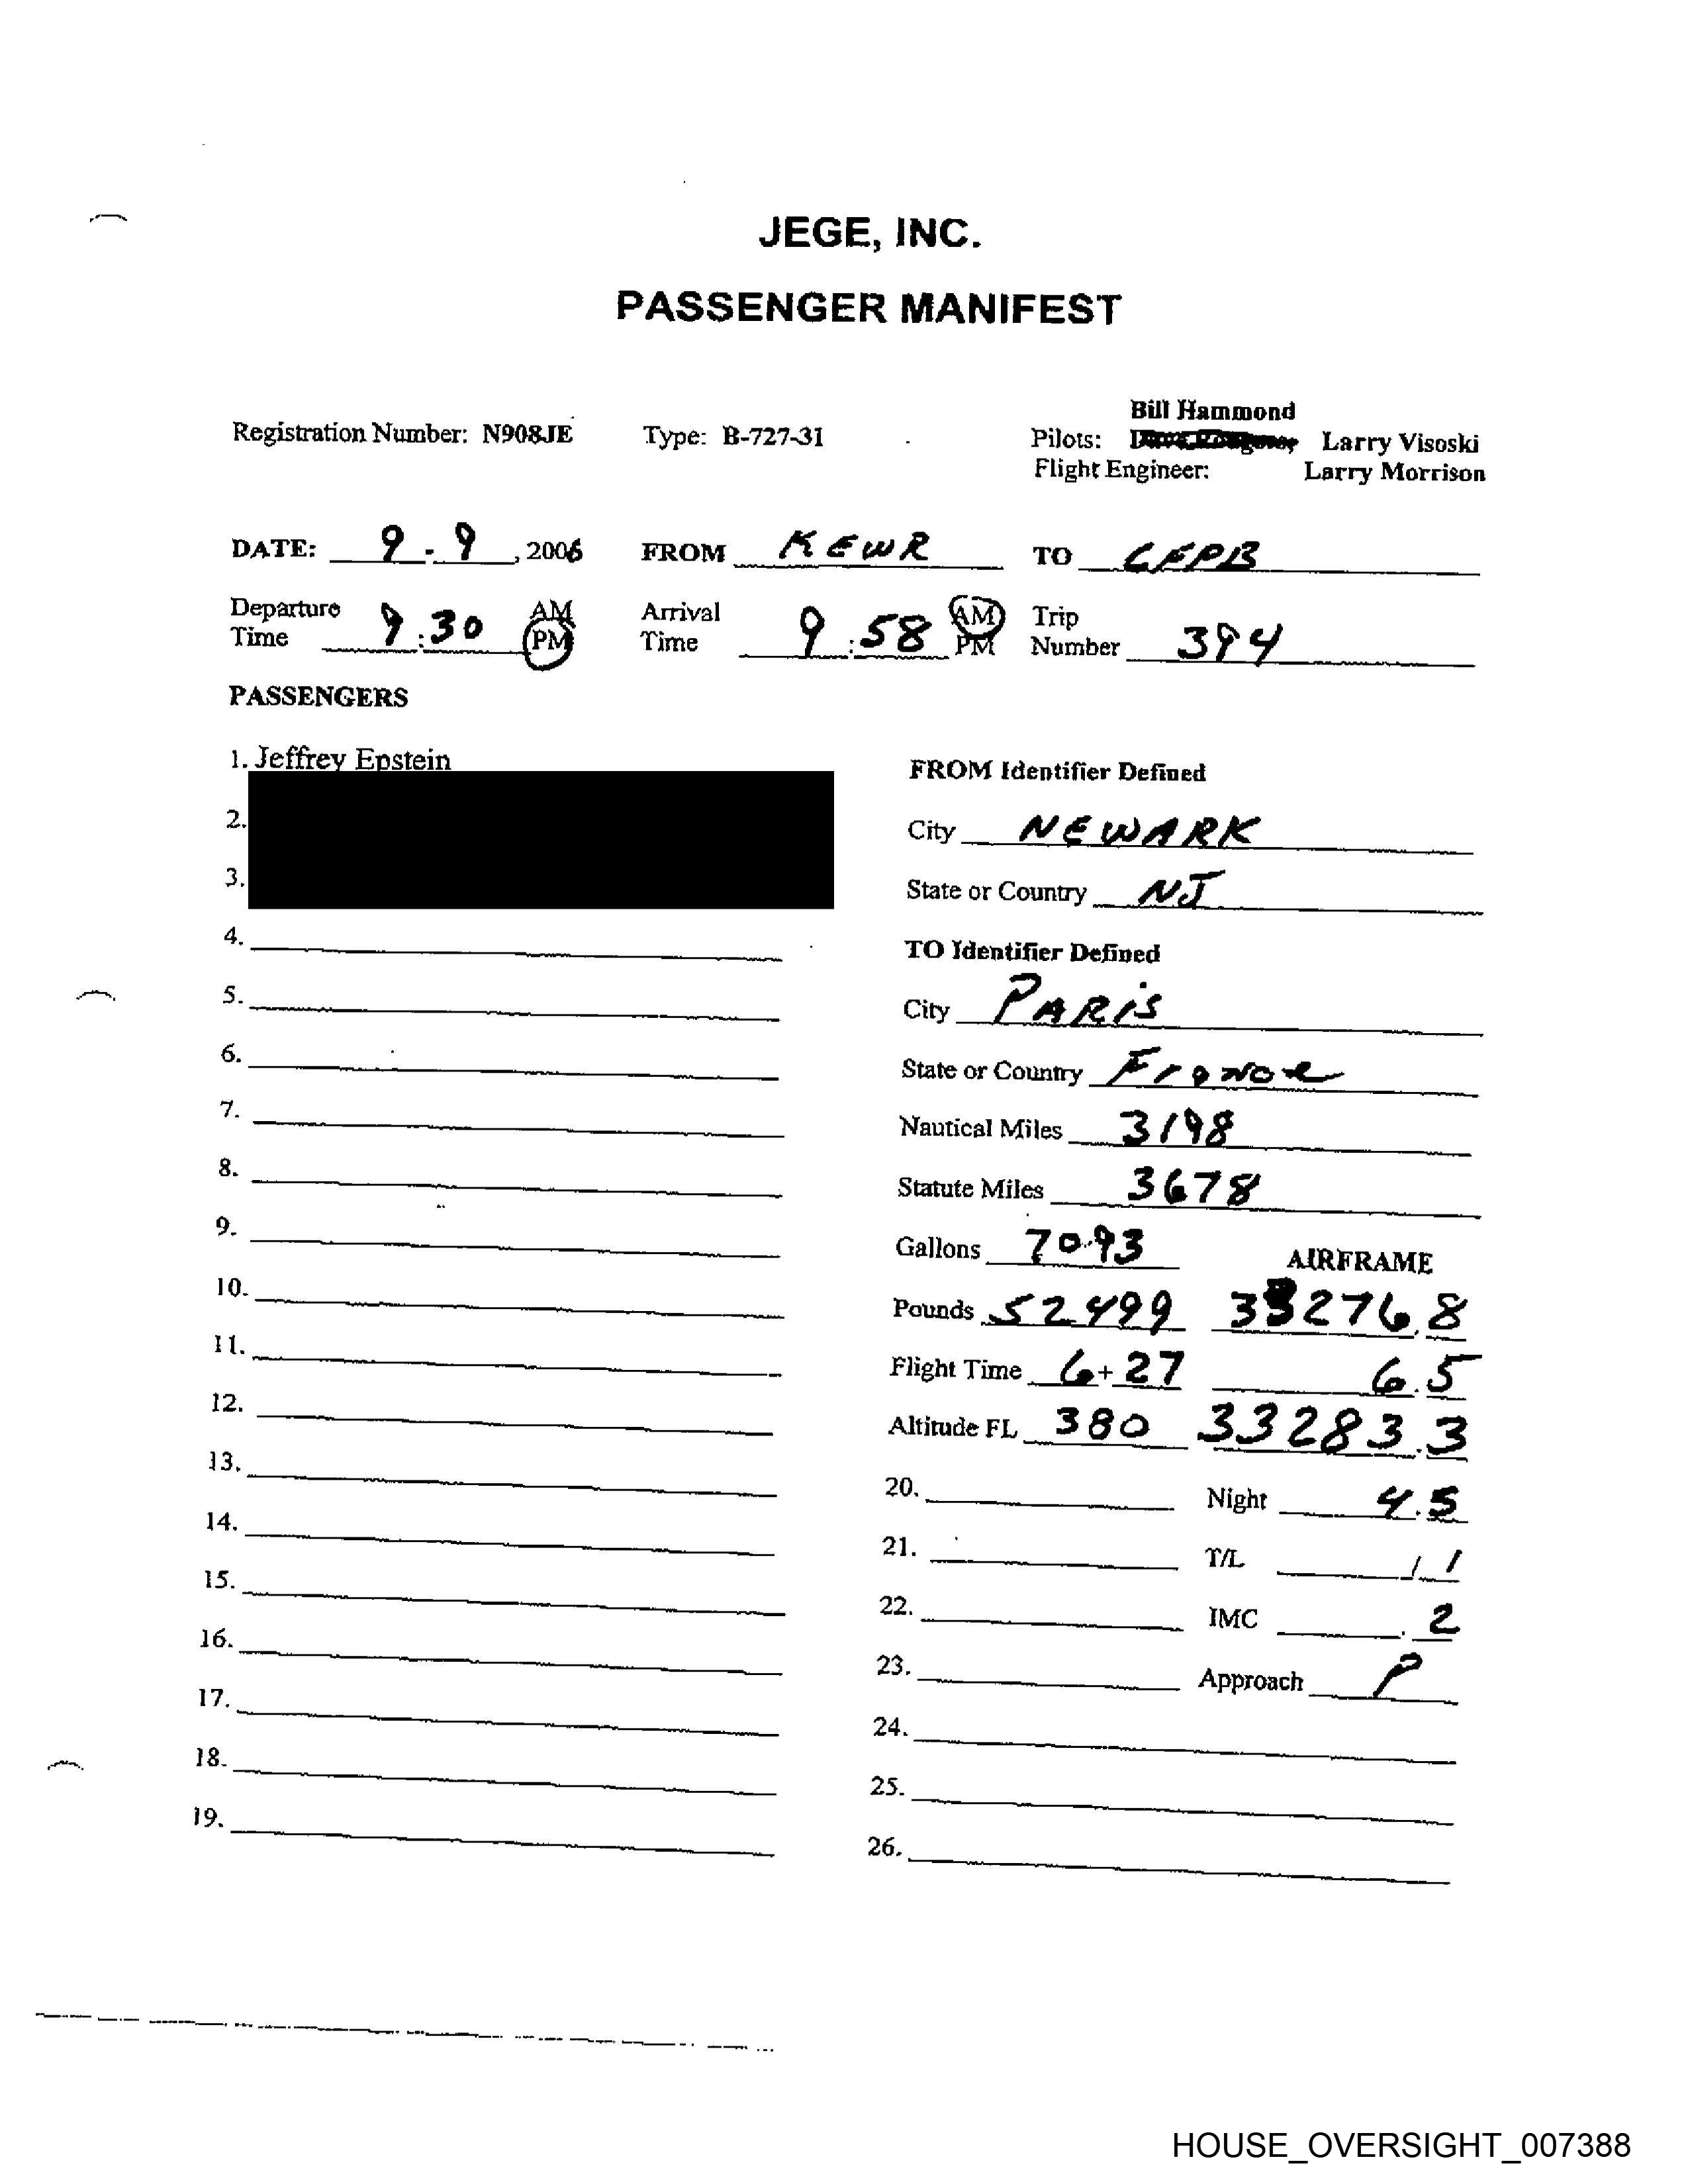 JEGE, INC.
PASSENGER MANIFEST
Bill Hammond
Registration Number: N908JE Type: B-727-31 Pilots: Larry Visoski
Flight Engineer: Larry Morrison
DATE: 9 - 9, 2006 FROM KEWR TO LFPB
Departure Time 9:30 AM PM Arrival Time 9:58 AM PM Trip Number 394
PASSENGERS
1. Jeffrey Epstein
2.
3.
4.
5.
6.
7.
8.
9.
10.
11.
12.
13.
14.
15.
16.
17.
18.
19.
FROM Identifier Defined
City NEWARK
State or Country NJ
TO Identifier Defined
City PARIS
State or Country France
Nautical Miles 3198
Statute Miles 3678
Gallons 7093 AIRFRAME
Pounds 52499 33276.8
Flight Time 6+27 6.5
Altitude FL 380 33283.3
20. Night 4.5
21. T/L 1/1
22. IMC .2
23. Approach P
24.
25.
26.
HOUSE_OVERSIGHT_007388